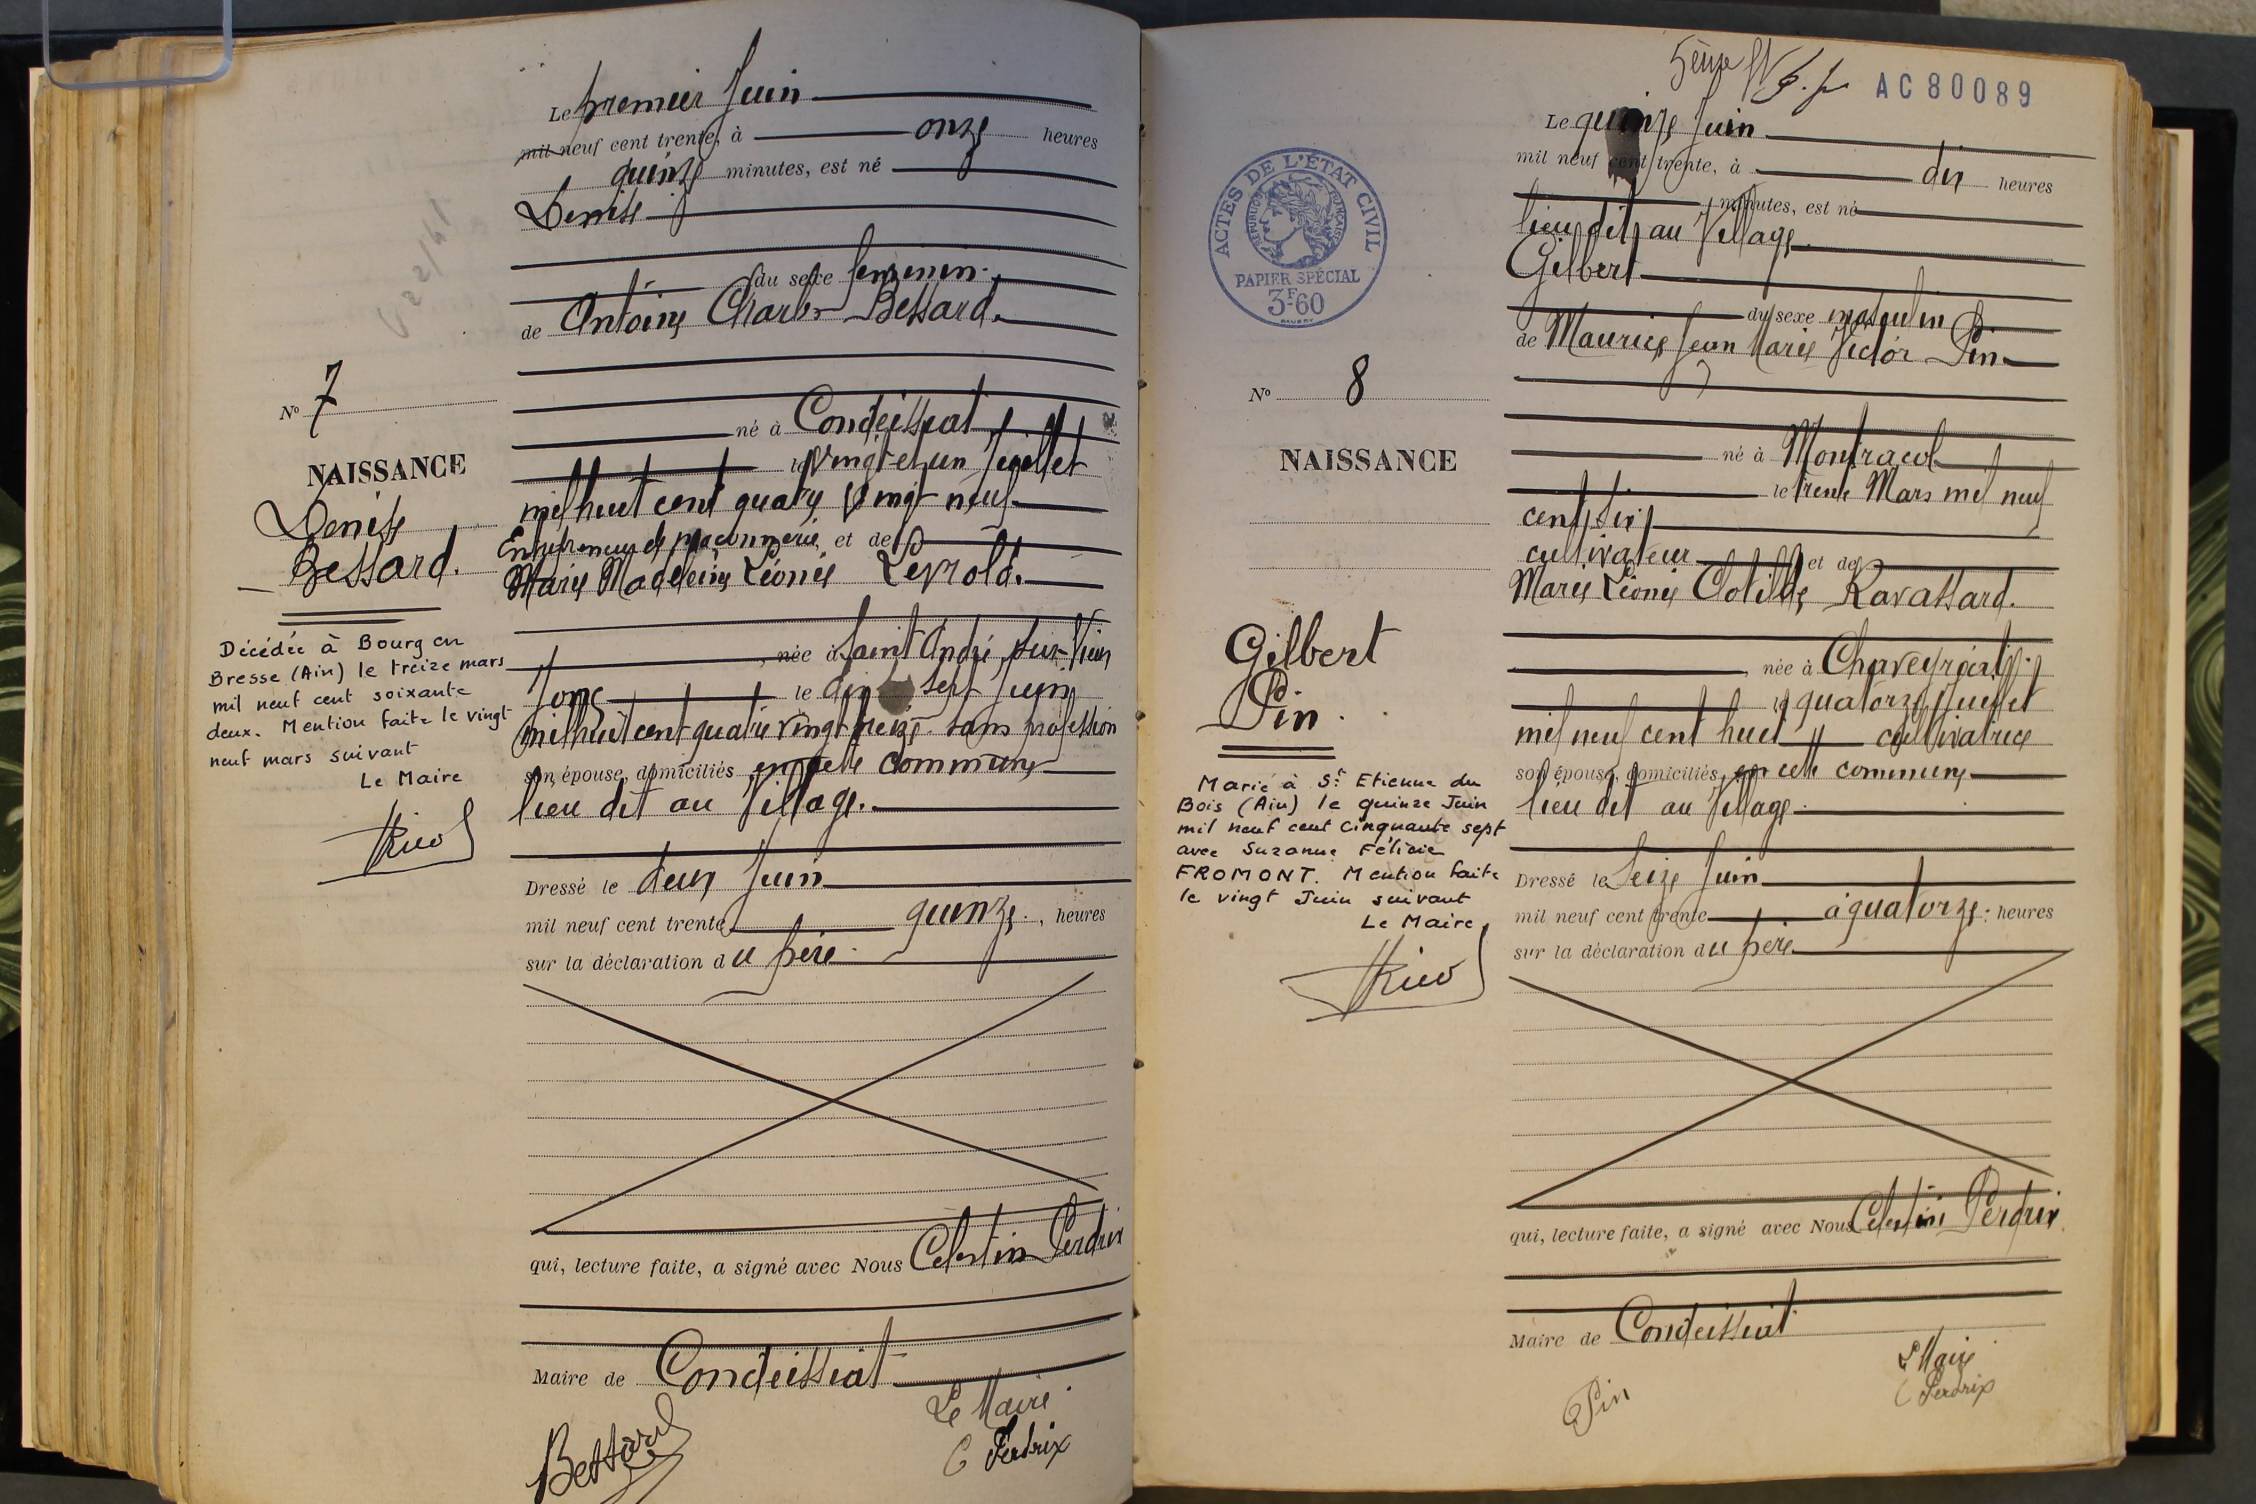 Le premier Juin
mil neuf cent trente, à onze heures
quinze minutes, est né
Denise
du sexe feminin.
de Antoine Charles Bessard.
né à Condeissiat
le vingt et un Juillet
mil huit cent quatre vingt neuf
Entrepreneur de maçonnerie et de
Marie Madeleine Léonie Leyrold.
née à Saint André sur Vieux
Jonc le dix sept Juin
mil huit cent quatre vingt treize sans profession
son épouse, domiciliés en cette commune
lieu dit au Village.
Dressé le deux Juin
mil neuf cent trente quinze heures
sur la déclaration du père
qui, lecture faite, a signé avec Nous Celestin Perdrix
Maire de Condeissiat
Le Maire
C Perdrix
Bessard
No 7
NAISSANCE
Denise
Bessard.
Décédée à Bourg en
Bresse (Ain) le treize mars
mil neuf cent soixante
deux. Mention faite le vingt
neuf mars suivant
Le Maire
AC 80089
ACTES DE L'ÉTAT CIVIL
RÉPUBLIQUE FRANÇAISE
PAPIER SPÉCIAL
3F60
Le quinze Juin
mil neuf cent trente, à dix heures
minutes, est né
lieu dit au Village
Gilbert
du sexe masculin
de Maurice Jean Marie Victor Pin
né à Montracol
le trente Mars mil neuf
cent six
cultivateur et de
Marie Léonie Clotilde Ravassard.
née à Chaveyriat
le quatorze Juillet
mil neuf cent huit cultivatrice
son épouse, domiciliés en cette commune
lieu dit au Village.
Dressé le Seize Juin
mil neuf cent trente à quatorze heures
sur la déclaration du père
qui, lecture faite, a signé avec Nous Celestin Perdrix
Maire de Condeissiat
Le Maire
C Perdrix
Pin
No 8
NAISSANCE
Gilbert
Pin.
Marié à St Etienne du
Bois (Ain) le quinze Juin
mil neuf cent cinquante sept
avec Suzanne Félicie
FROMONT. Mention faite
le vingt Juin suivant
Le Maire